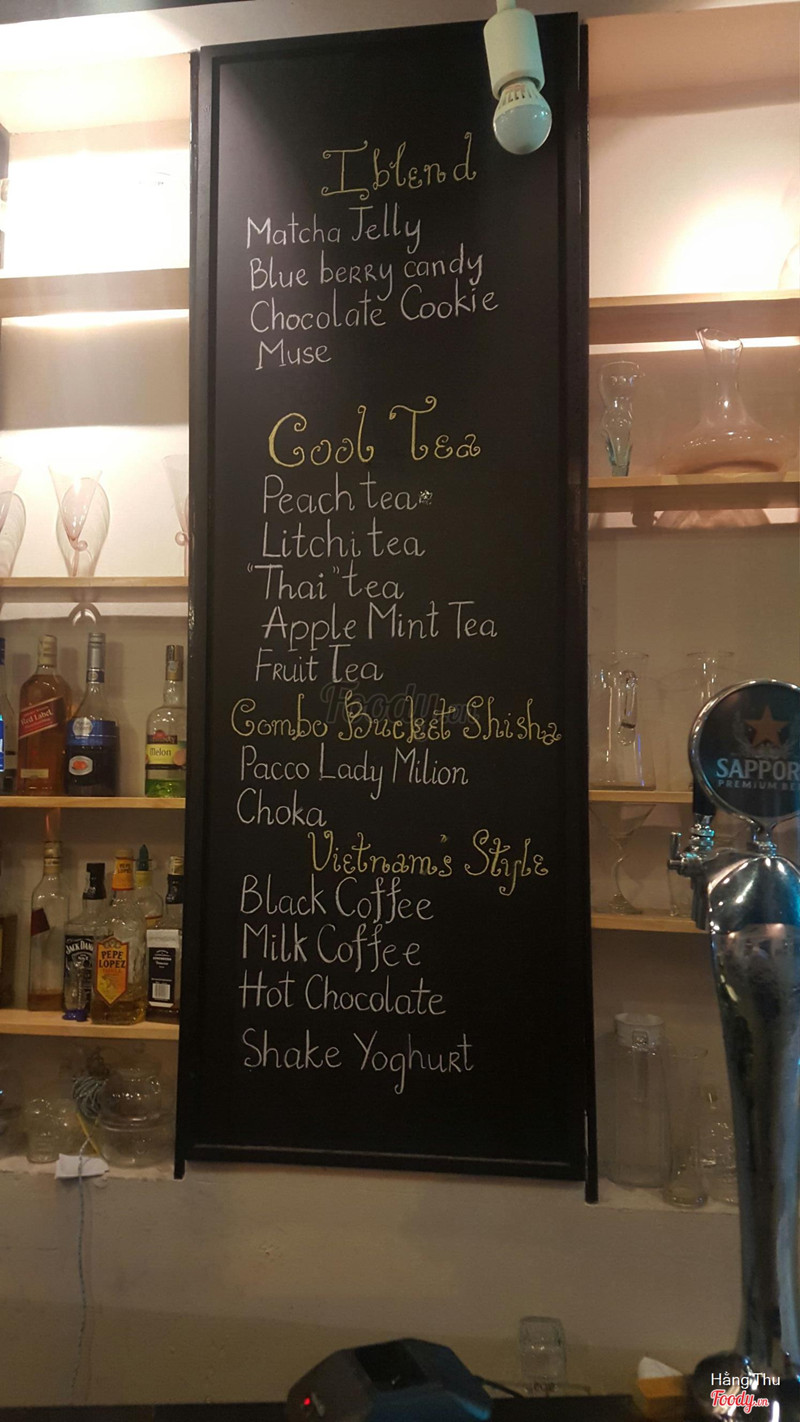 Iblend
Matcha Jelly
Blue berry candy
Chocolate Cookie
Muse
Cool Tea
Peach tea
Litchi tea
"Thai" tea
Apple Mint Tea
Fruit Tea
Foody.vn
Combo Bucket Shisha
Pacco Lady Milion
Choka
Vietnam's Style
Black Coffee
Milk Coffee
Hot Chocolate
Shake Yoghurt
Red Label
Melon
JACK DANIEL'S
PEPE
LOPEZ
SAPPORO
PREMIUM BEER
Hằng Thu
Foody.vn